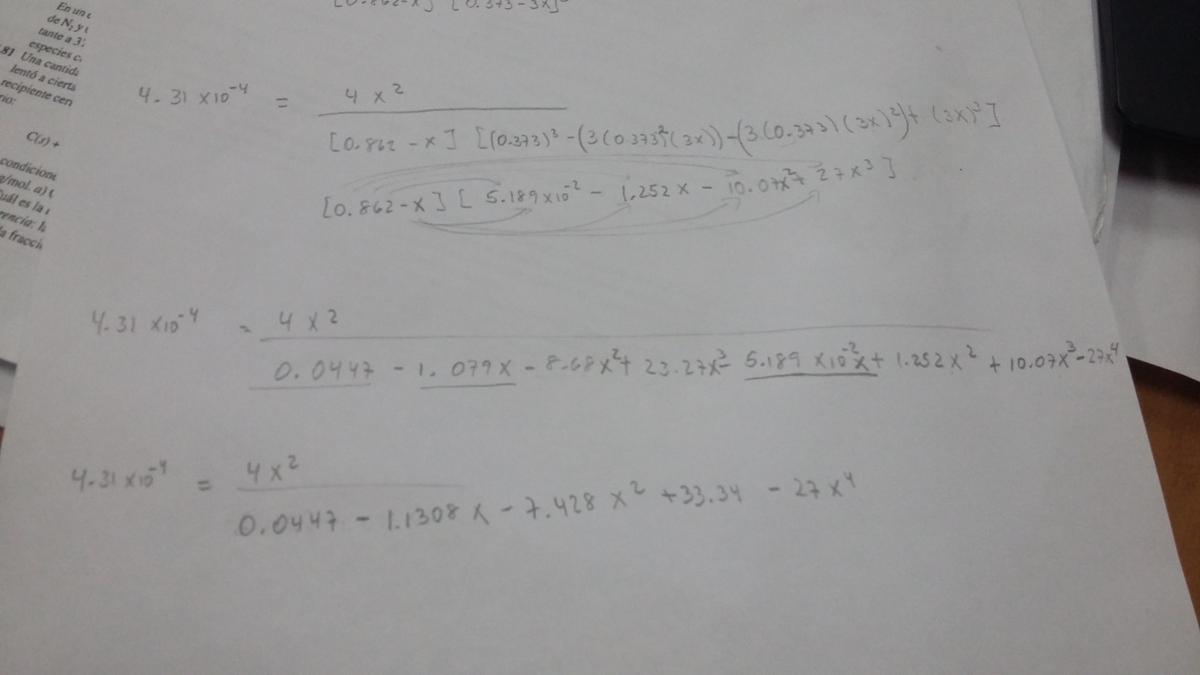 En un
de N₂ y
tante a 3
especies c
8] Una cantid
lentó a cierta
recipiente cer
rio:
C(s) +
condicione
g/mol. a)
uál es la
rencia:
la fracci
[0.862-x] [0.373-3x]³
4.31 x10⁻⁴ = 4 x² / [0.862 - x] [(0.373)³ - (3(0.373)²(3x)) - (3(0.373)(3x)²) + (3x)³]
[0.862-x] [ 5.189x10⁻² - 1.252x - 10.07x² + 27x³ ]
4.31 x10⁻⁴ = 4 x² / 0.0447 - 1.079x - 8.68x² + 23.27x³ - 5.189 x10⁻²x + 1.252x² + 10.07x³ - 27x⁴
4.31 x10⁻⁴ = 4x² / 0.0447 - 1.1308x - 7.428x² + 33.34 - 27x⁴